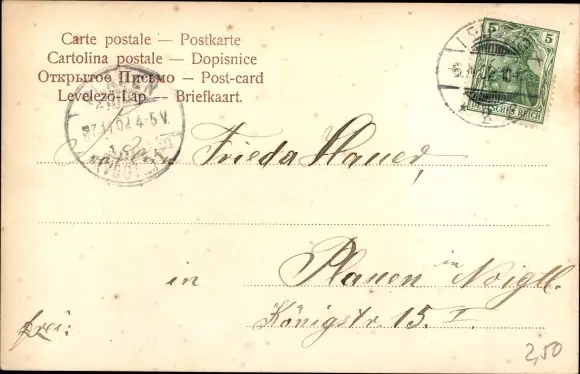 Carte postale — Postkarte
Cartolina postale — Dopisnice
Открытое Письмо — Post-card
Levelező-Lap — Briefkaart.
5 5
DEUTSCHES REICH
Fräulein Frieda Hauer,
in Plauen in Voigtl.
Königstr. 15. I.
frei:
2,50